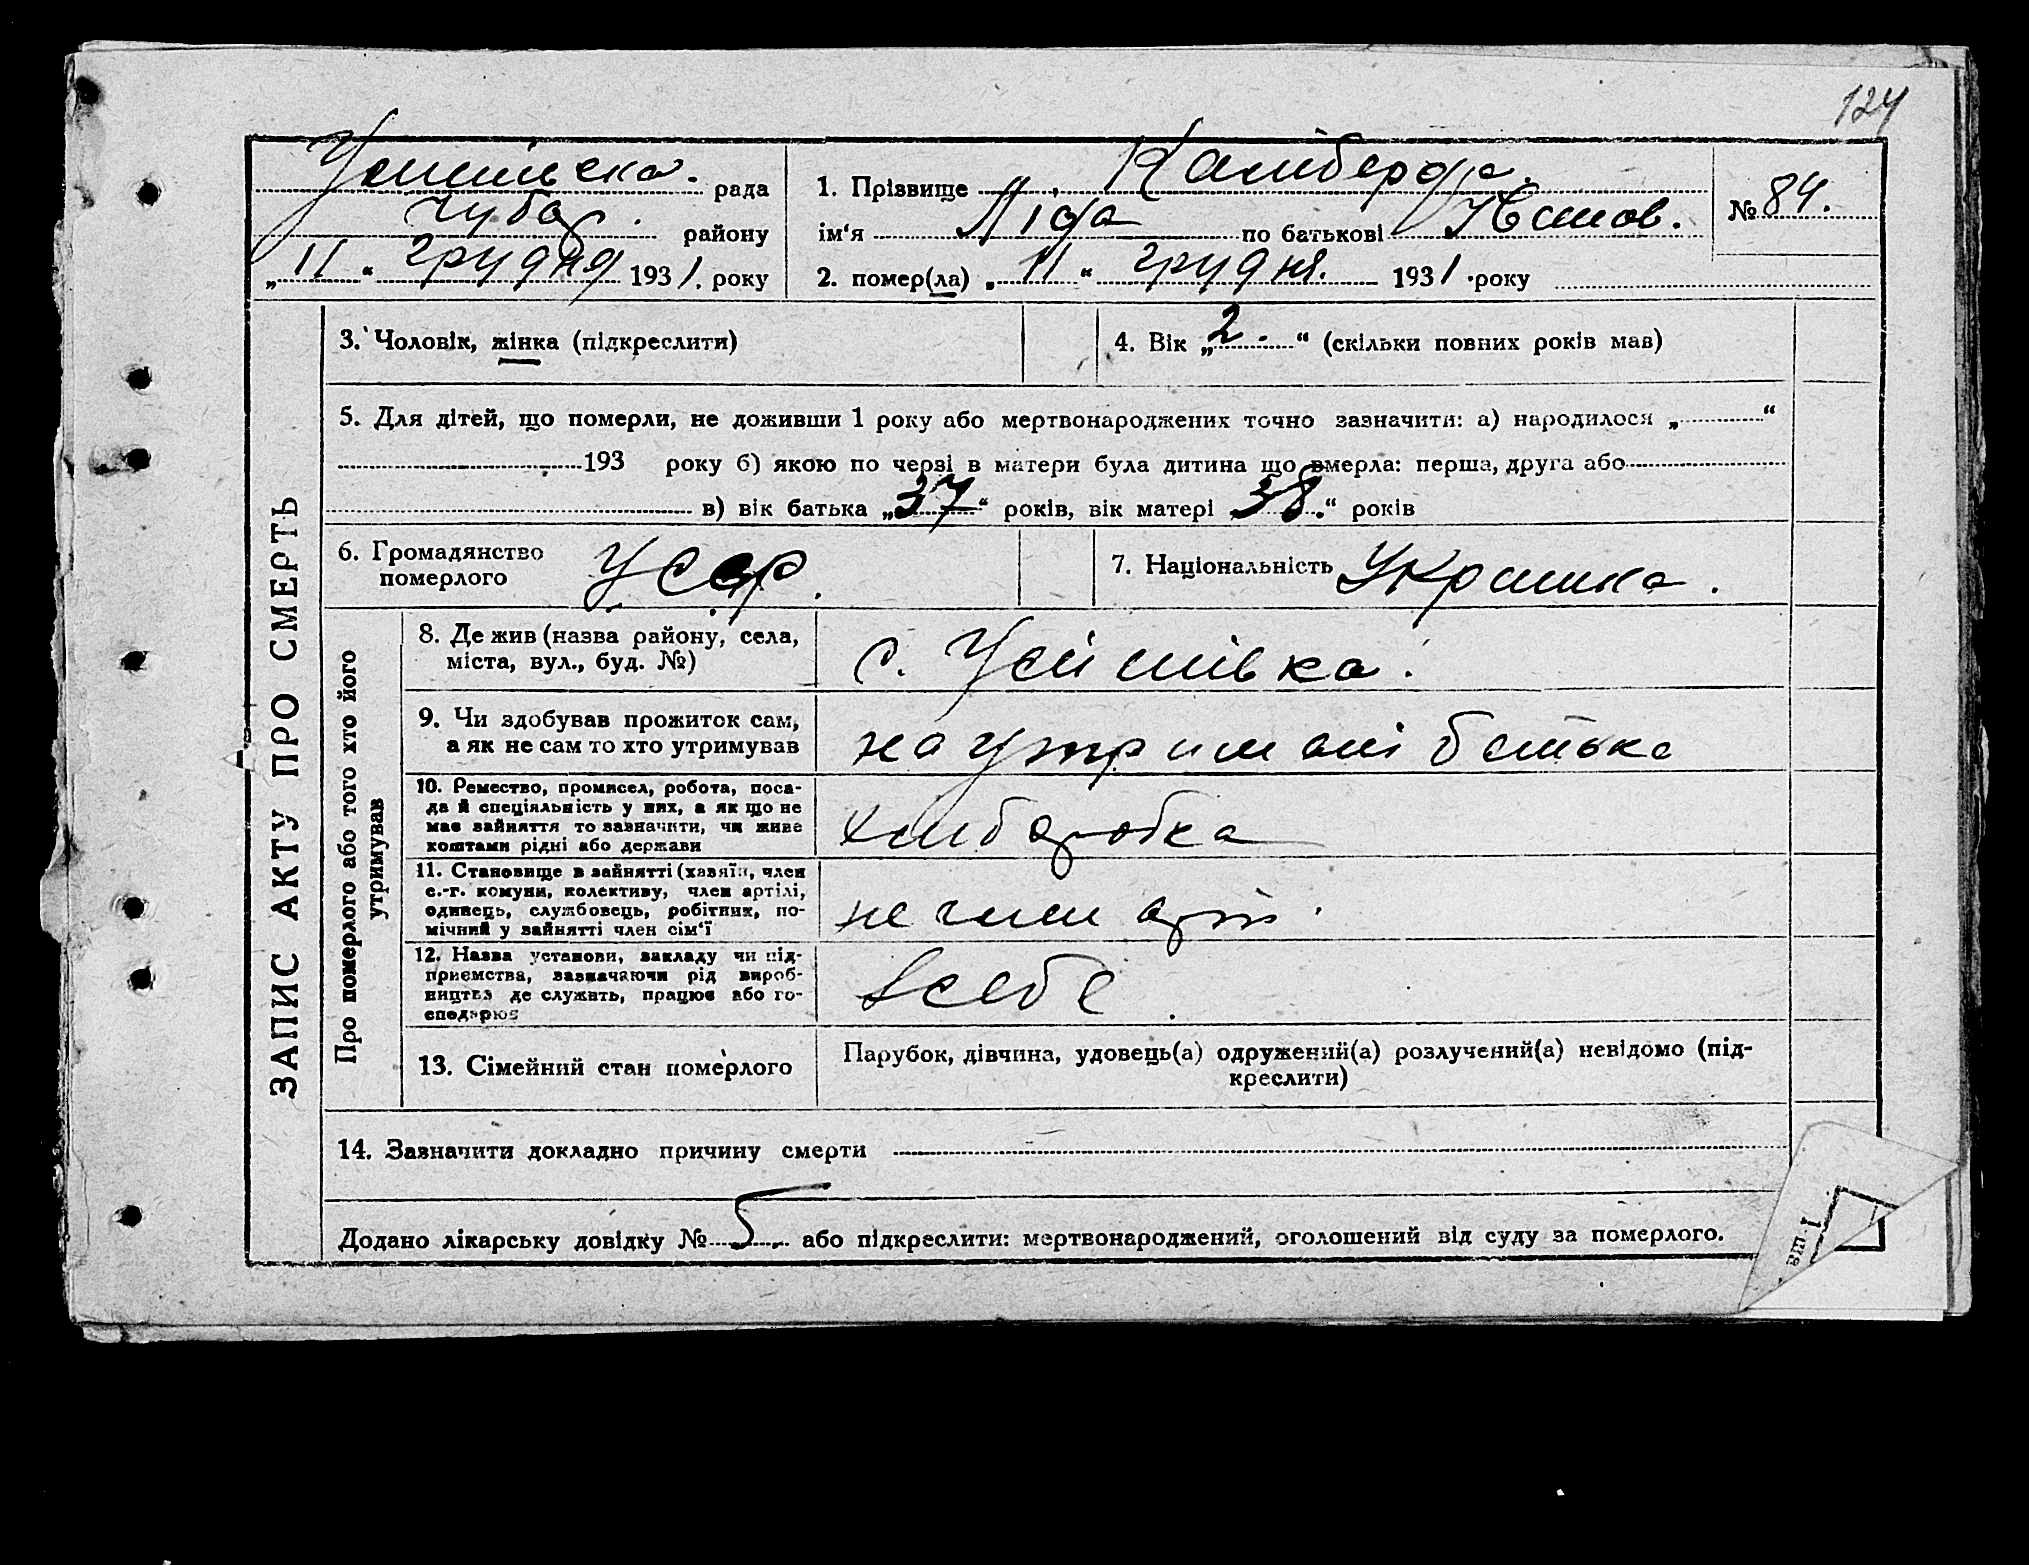 124
рада
1. Прізвище Калиберда.
№ 84.
району
ім‘я Ліда по батькові
„11“ грудня 1931. року
2. помер(ла) „11“ грудня. 1931 року
ЗАПИС АКТУ ПРО СМЕРТЬ
3. Чоловік, жінка (підкреслити)
4. Вік „2.“ (скільки повних років мав)
5. Для дітей, що померли, не доживши 1 року або мертвонароджених точно зазначити: а) народилося „ “
193 року б) якою по черзі в матери була дитина що вмерла: перша, друга або
в) вік батька „37“ років, вік матері „38.“ років
6. Громадянство
померлого
УССР.
7. Національність Украинка.
Про померлого або того хто його
утримував
8. Де жив (назва району, села,
міста, вул., буд. №)
с.
9. Чи здобував прожиток сам,
а як не сам то хто утримував
на утримані батька
10. Ремество, промисел, робота, поса-
да й спеціяльність у них, а як що не
має зайняття то зазначити, чи живе
коштами рідні або держави
11. Становище в зайнятті (хазяїн, член
с.-г. комуни, колективу, член артілі,
одинець, службовець, робітник, по-
мічний у зайнятті член сім‘ї
не член арт.
12. Назва установи, закладу чи під-
приємства, зазначаючи рід вироб-
ництва де служить, працює або го-
сподарює
в себе.
13. Сімейний стан померлого
Парубок, дівчина, удовець(а) одружений(а) розлучений(а) невідомо (під-
креслити)
14. Зазначити докладно причину смерти
Додано лікарську довідку № 5 або підкреслити: мертвонароджений, оголошений від суду за померлого.